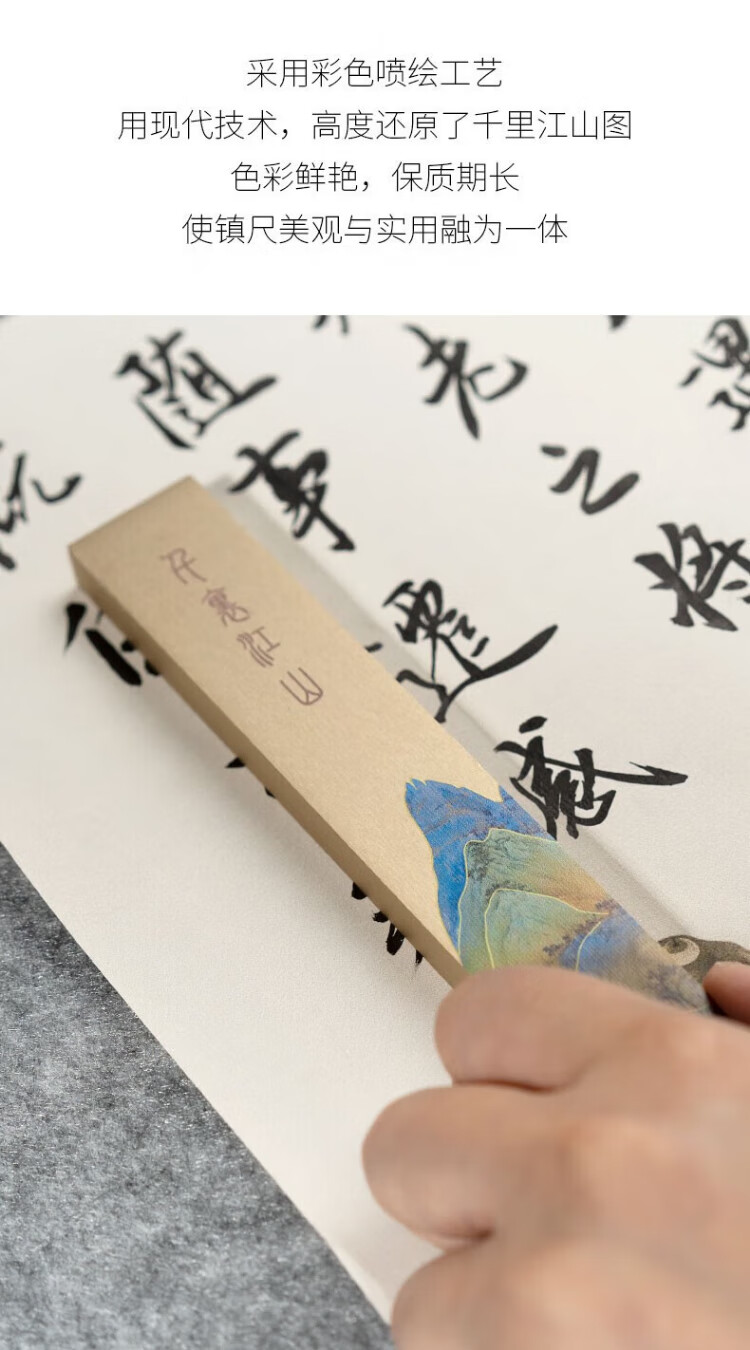 采用彩色喷绘工艺
用现代技术，高度还原了千里江山图
色彩鲜艳，保质期长
使镇尺美观与实用融为一体
随
老
事
之
将
迁
感
江山